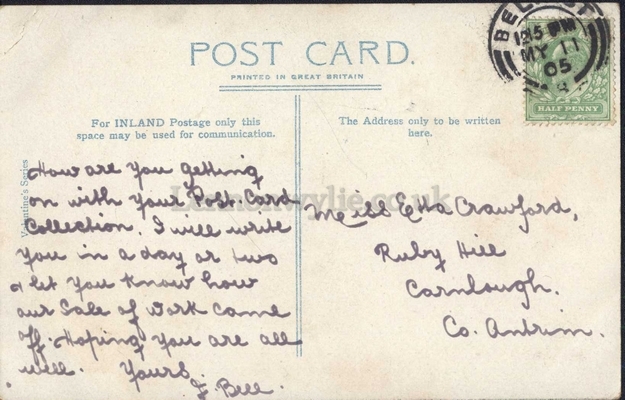 BELFAST
12.15 PM
MY 11
05
HALF PENNY
POST CARD.
PRINTED IN GREAT BRITAIN
For INLAND Postage only this
space may be used for communication.
The Address only to be written
here.
Valentine's Series
How are you getting
on with your Post. Card
Collection. I will write
you in a day or two
& let you know how
our Sale of Work came
off. Hoping you are all
well. Yours
J. Bell.
Miss Etta Crawford,
Ruby Hill
Carnlough.
Co. Antrim.